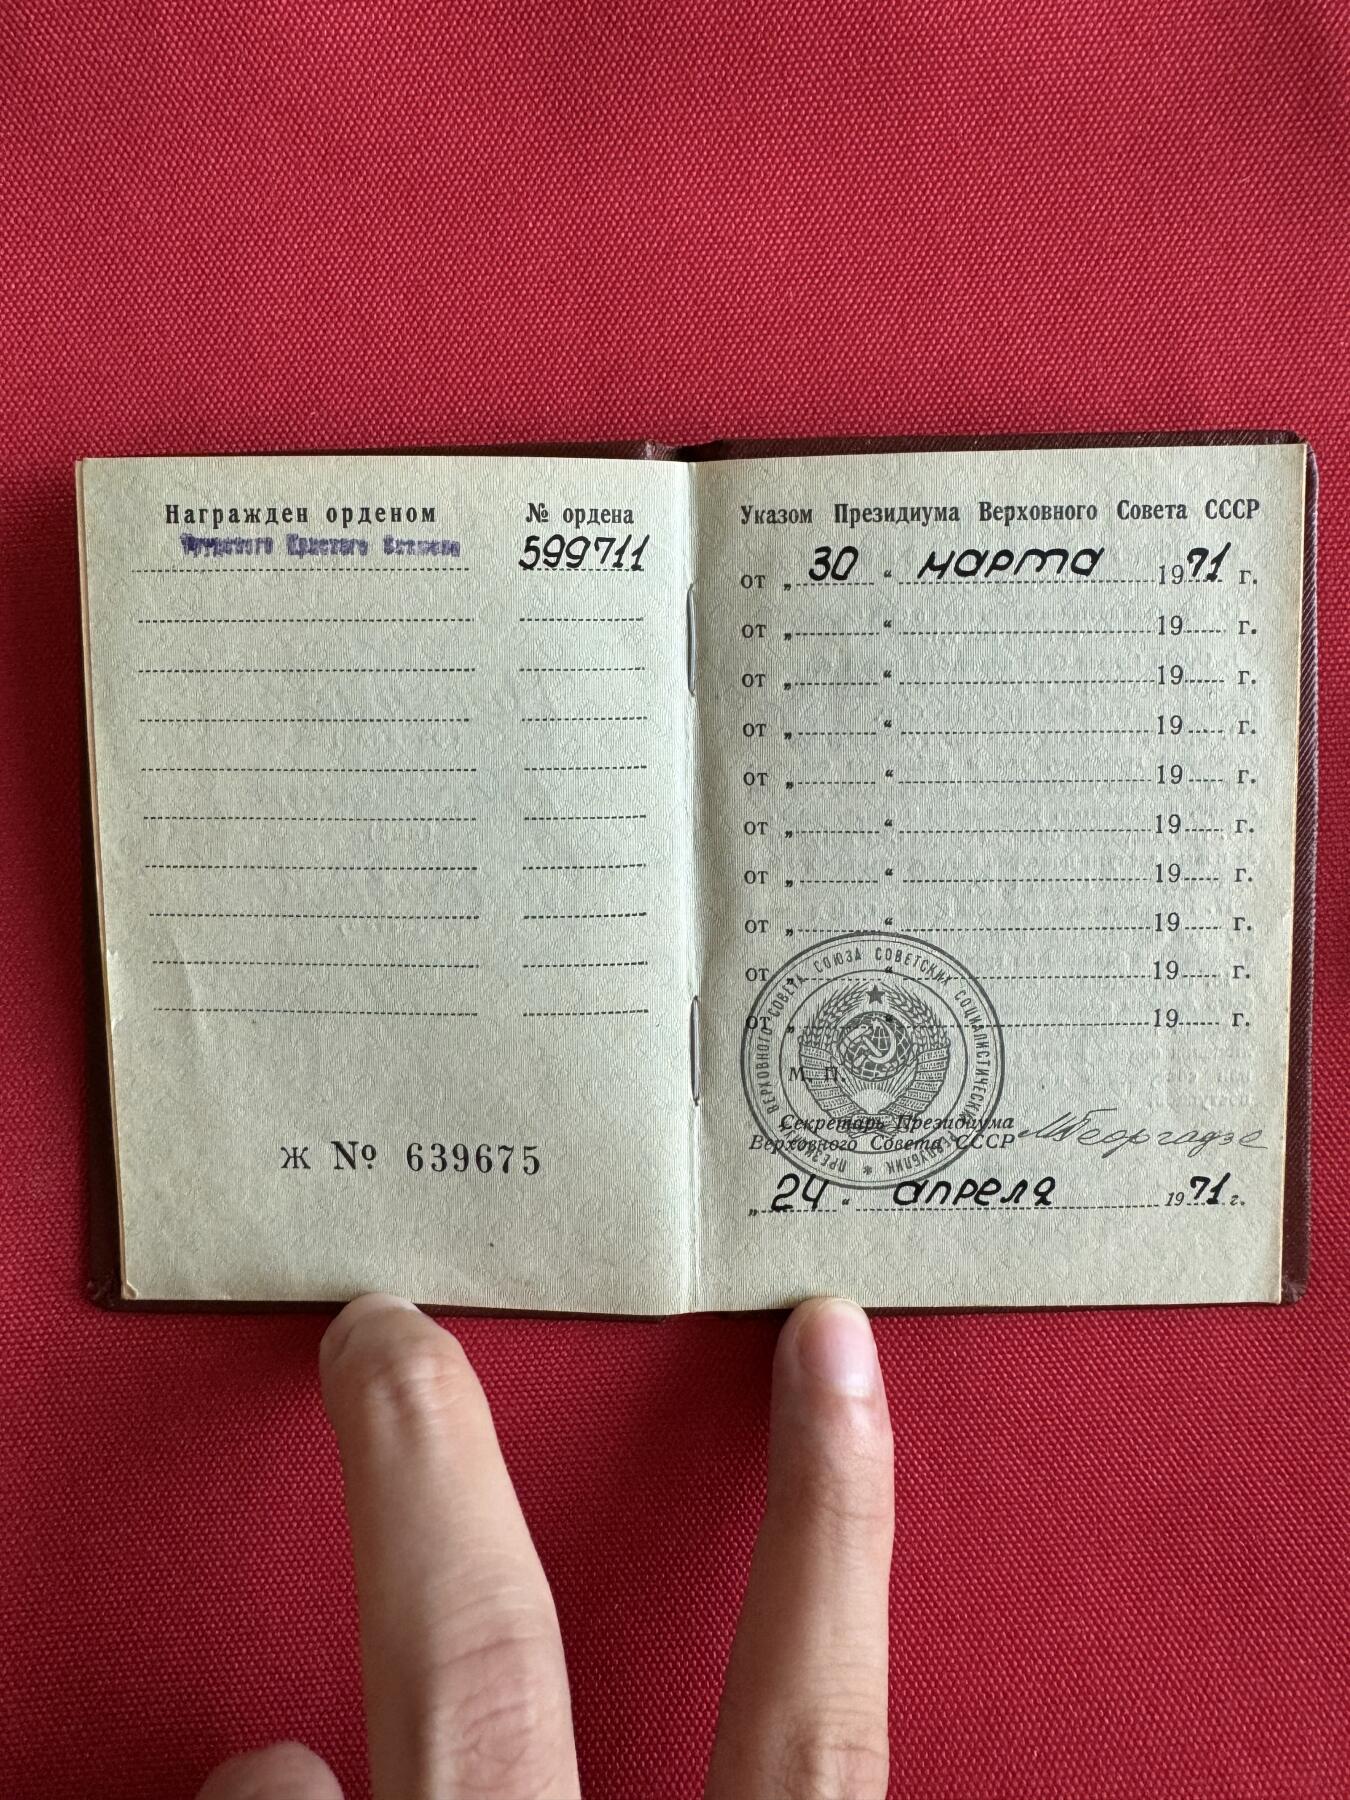 Награжден орденом
№ ордена
Трудового Красного Знамени
599711
Ж № 639675
Указом Президиума Верховного Совета СССР
от „ 30 “ марта 1971 г.
от „ “ 19 г.
от „ “ 19 г.
от „ “ 19 г.
от „ “ 19 г.
от „ “ 19 г.
от „ “ 19 г.
от „ “ 19 г.
от „ “ 19 г.
от „ “ 19 г.
ПРЕЗИДИУМ ВЕРХОВНОГО СОВЕТА СОЮЗА СОВЕТСКИХ СОЦИАЛИСТИЧЕСКИХ РЕСПУБЛИК *
М. П.
Секретарь Президиума
Верховного Совета СССР МГеоргадзе
„ 24 “ апреля 1971 г.